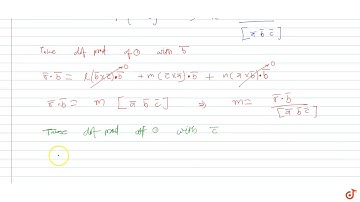 [ā b̄ c̄]
Take dot prod of ① with b̄
r̄·b̄ = l(b̄×c̄)·b̄ + m(c̄×ā)·b̄ + n(ā×b̄)·b̄
r̄·b̄ = m [ā b̄ c̄] ⇒ m = r̄·b̄ / [ā b̄ c̄]
Take dot prod of ① with c̄